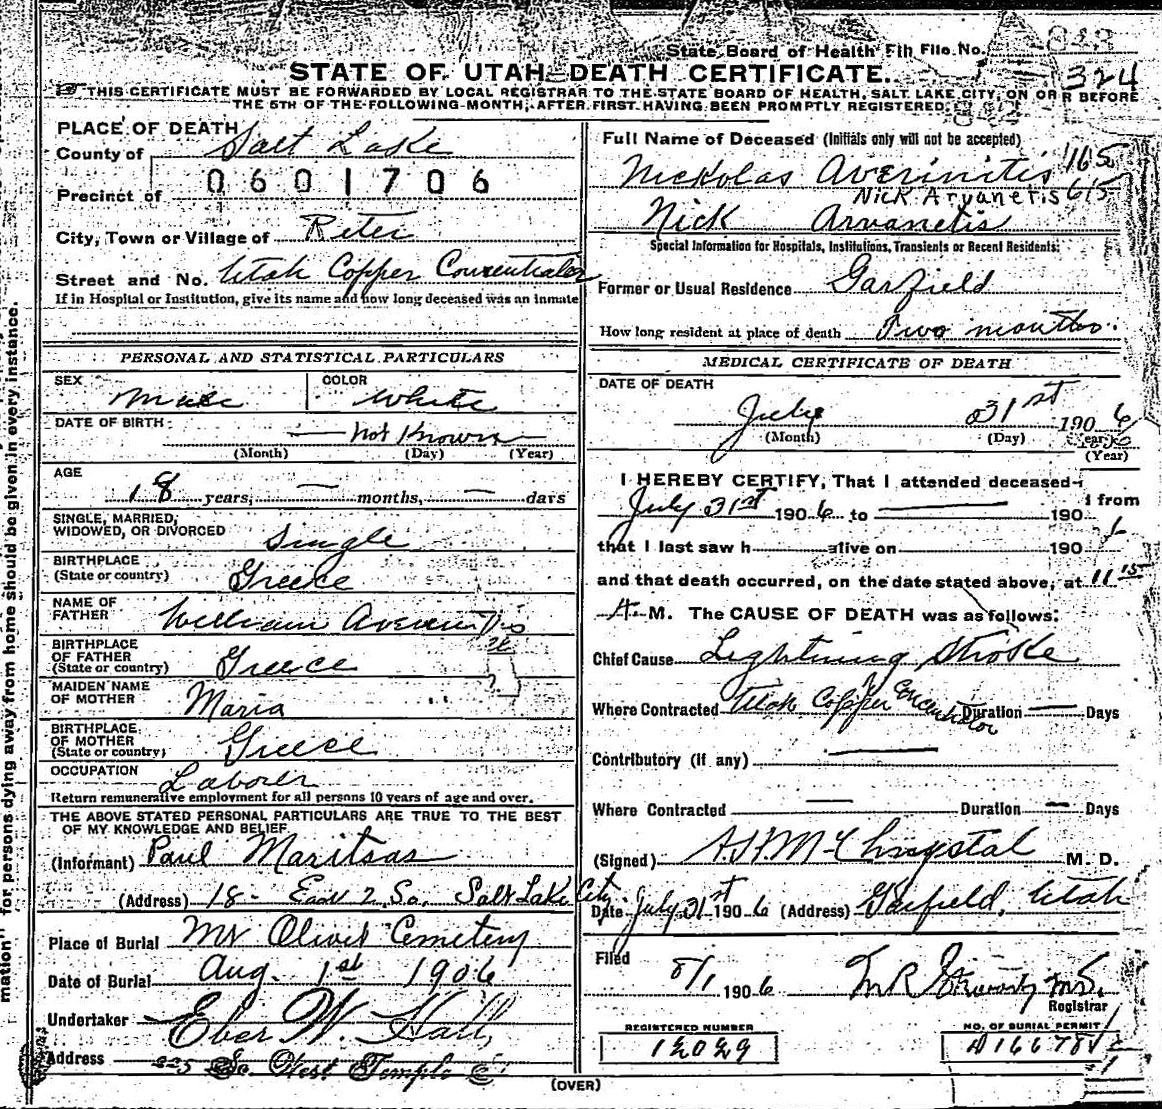 State Board of Health Fth File No. 823
324
STATE OF UTAH—DEATH CERTIFICATE.
THIS CERTIFICATE MUST BE FORWARDED BY LOCAL REGISTRAR TO THE STATE BOARD OF HEALTH, SALT LAKE CITY, ON OR BEFORE
THE 5TH OF THE FOLLOWING MONTH, AFTER FIRST HAVING BEEN PROMPTLY REGISTERED.
PLACE OF DEATH
County of Salt Lake
Precinct of 0601706
City, Town or Village of Riter
Street and No. Utah Copper Concentrator
If in Hospital or Institution, give its name and how long deceased was an inmate
PERSONAL AND STATISTICAL PARTICULARS
SEX Male COLOR White
DATE OF BIRTH — not known —
(Month) (Day) (Year)
AGE
18 years, — months, — days
SINGLE, MARRIED,
WIDOWED, OR DIVORCED Single
BIRTHPLACE
(State or country) Greece
NAME OF
FATHER William
BIRTHPLACE
OF FATHER
(State or country) Greece
MAIDEN NAME
OF MOTHER Maria
BIRTHPLACE
OF MOTHER
(State or country) Greece
OCCUPATION Laborer
Return remunerative employment for all persons 10 years of age and over.
THE ABOVE STATED PERSONAL PARTICULARS ARE TRUE TO THE BEST
OF MY KNOWLEDGE AND BELIEF
(Informant) Paul Maritsas
(Address) 18- East 2 So. Salt Lake City.
Place of Burial Mt Olivet Cemetery
Date of Burial Aug. 1st 1906
Undertaker Eber W. Hall,
Address 225 So. West Temple
Full Name of Deceased (Initials only will not be accepted)
Nickolas Averinitis 165
Nick Arvanetis 615
Nick Arvanetis
Special Information for Hospitals, Institutions, Transients or Recent Residents:
Former or Usual Residence Garfield
How long resident at place of death Two months.
MEDICAL CERTIFICATE OF DEATH
DATE OF DEATH
July 31st 1906
(Month) (Day) (Year)
(Year)
I HEREBY CERTIFY, That I attended deceased
from
July 31st 1906 to — 190
that I last saw h alive on 190
and that death occurred, on the date stated above, at 11 15
A. M. The CAUSE OF DEATH was as follows:
Chief Cause Lightning Stroke
Where Contracted Utah Copper Concentrator Duration — Days
Contributory (if any) —
Where Contracted — Duration — Days
(Signed) Chrystal M. D.
Date July 31st 1906 (Address) Garfield, Utah
Filed
8/1 1906
Registrar
REGISTERED NUMBER
12029
NO. OF BURIAL PERMIT
A16678
(OVER)
mation" for persons dying away from home should be given in every instance.